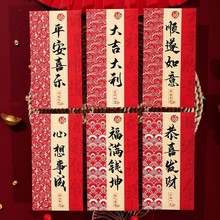 平安喜乐
大吉大利
顺遂如意
心想事成
福满钱坤
恭喜发财